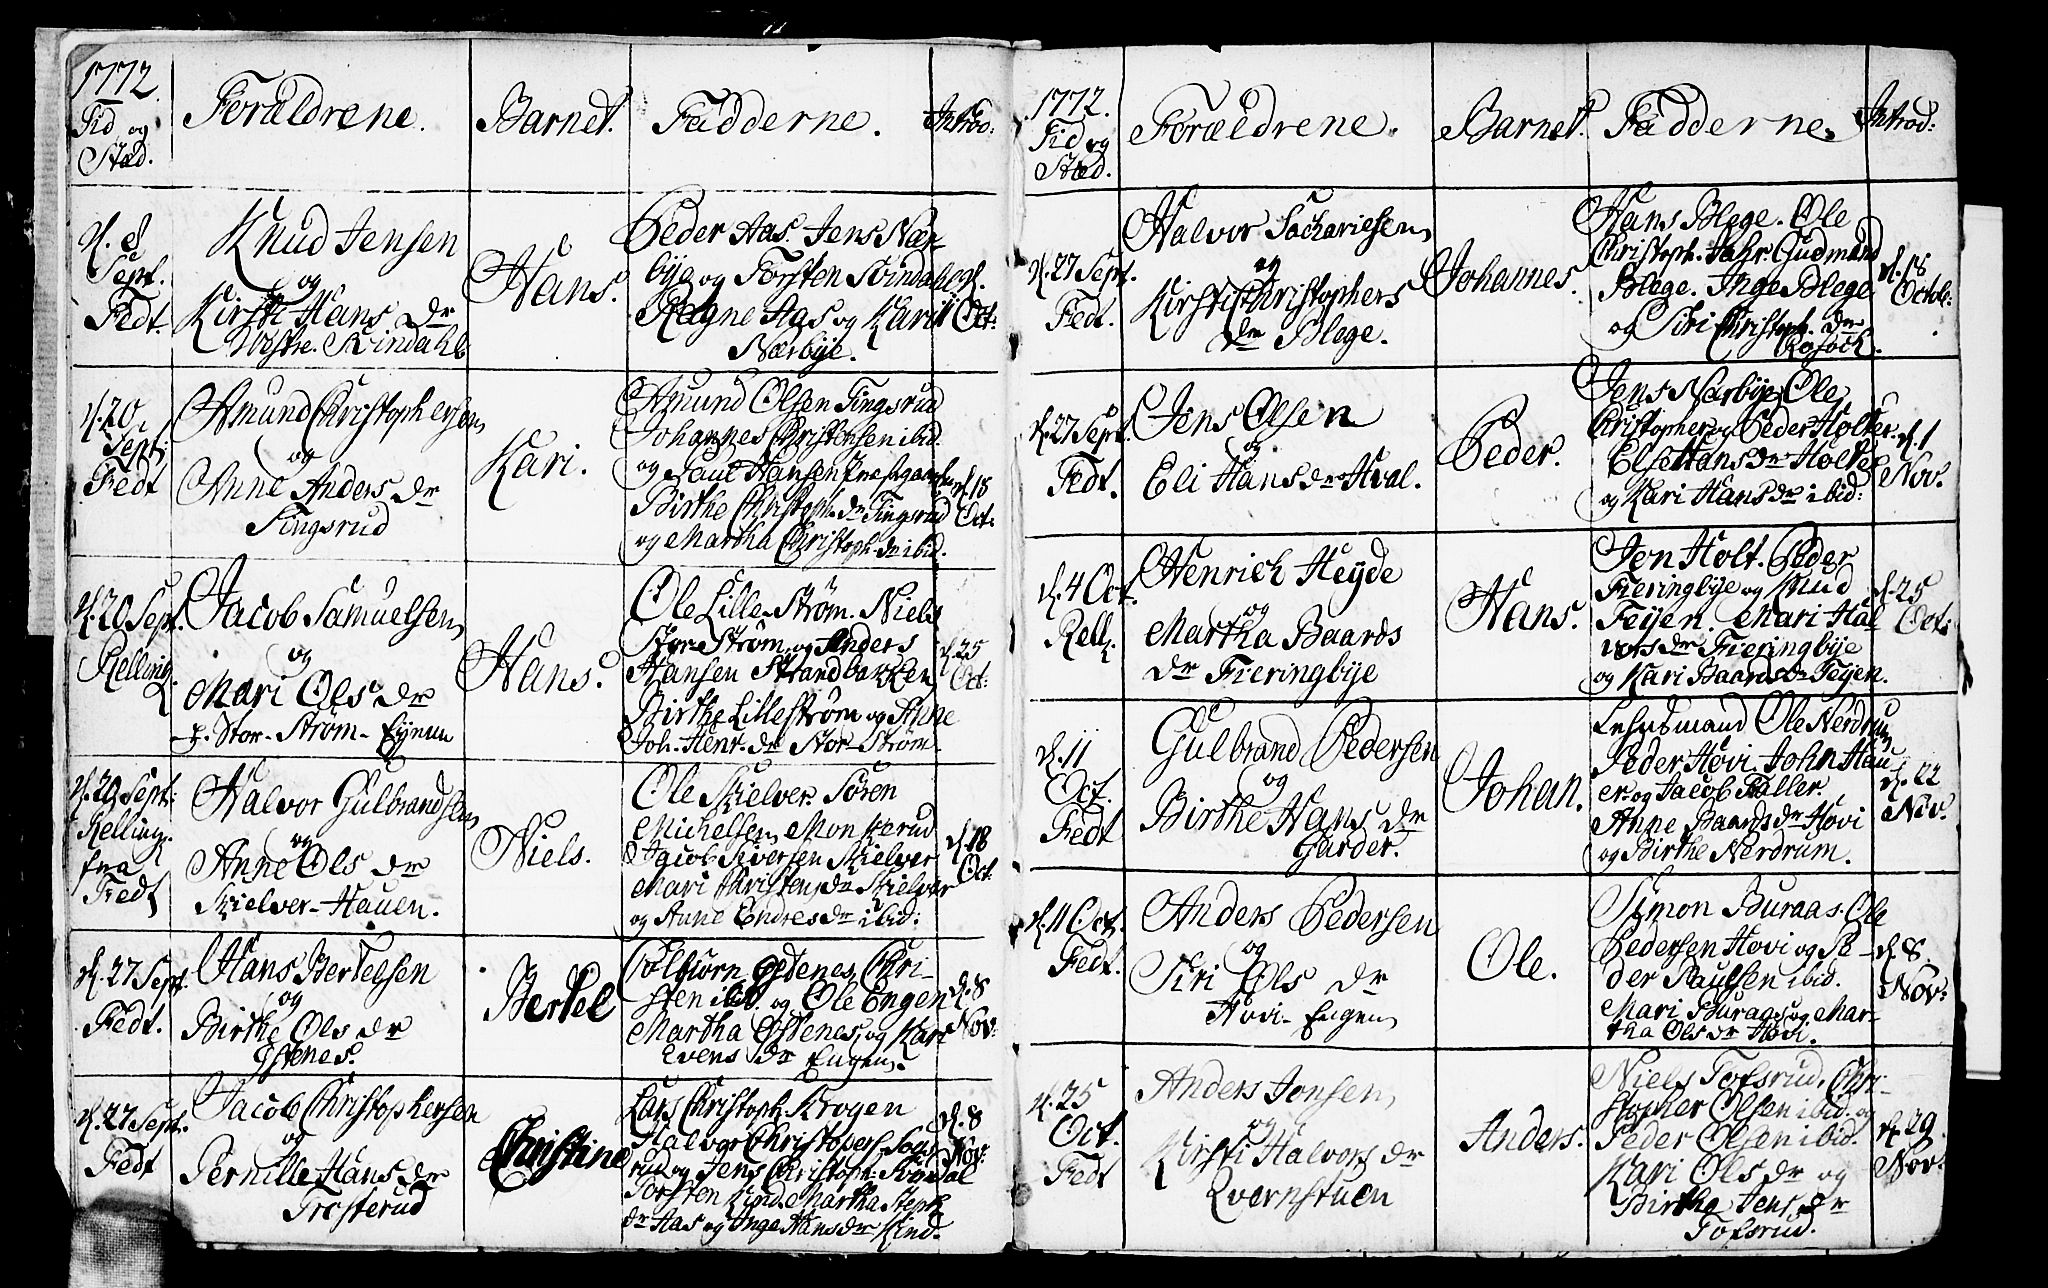 1772.
Tid og
Stæd.
Forældrene.
Barnet.
Fadderne.
Introd:
d. 8
Sept.
Fedt.
Knud Jensen
og
Kirsti Hans dr
Westre. Svindahl
Hans.
Peder Aas. Jens Nær-
bÿe og Torsten Svindahl
Ragne Aas og Kari
Nærbÿe.
d. 11
Oct:
d. 20
Sept:
Fedt
Amund Christophersen
og
Anne Anders dr
Tingsrud
Kari.
Amund Olsen Tingsrud
Johannes Christensen ibid.
og Paul Hansen
Birthe Christoph. dr Tingsrud
og Martha Christoph. dr ibid.
d. 18
Oct:
d. 20 Sept.
Relling.
Jacob Samuelsen
og
Mari Ols dr
Stor-Strøm-Eÿenn
Hans.
Ole Lille-Strøm. Niels
Stor-Strøm og Anders
Hansen Strandbakken
Birthe Lillestrøm og Anne
Joh. Henr. dr Stor-Strøm.
d. 25
Oct:
d. 20 Sept:
Relling.
fra
Fedt
Halvor Gulbrandsen
og
Anne Ols dr
Skielver-Hauen.
Niels.
Ole Skielver. Søren
Michelsen Monkerud
Jacob Siversen Skielver
Mari Christens dr Skielver
og Anne Endres dr ibid:
d. 18
Oct:
d. 27 Sept.
Fedt.
Hans Bertelsen
og
Birthe Ols dr
Østenes.
Bertel
Colbiørn Østenes, Chri-
sten ibid. og Ole Engen
Martha Østenes, og Kari
Evens dr Engen.
d. 8
Nov:
d. 27 Sept.
Fedt
Jacob Christophersen
og
Pernille Hans dr
Trosterud
Christine
Lars Christoph. Krogen
Halvor Christophers.
rud og Jens Christoph:
Torsten Kind. Martha Steph.
dr Aas og Inge Hans dr Kind.
d. 8
Nov:
1772.
Tid og
Stæd.
Forældrene.
Barnet.
Fadderne.
Introd:
d. 27 Sept.
Fedt.
Halvor Sachariesen
og
Kirsti Christophers
dr Blege.
Johannes.
Hans Blege. Ole
Christoph. Gudmund
Blege. Inge Blege
og Siri Christoph. dr
d. 18
Octob:
d. 27 Sept.
Fedt.
Jens Olsen
og
Eli Hans dr Hval.
Peder.
Jens Nærbÿe, Ole
Christopher og Peder Holter.
Else Hans dr Holter
og Kari Hans dr ibid:
d. 1
Nov.
d. 4 Oct.
Rell.
Henrich Heÿde
og
Martha Baards
dr Fieringbÿe
Hans.
Jon Holt. Peder
Fieringbÿe og Knud
Feÿen. Mari Hal-
vors dr Fieringbÿe
og Kari Baards dr Feÿen.
d. 25
Oct:
d. 11
Oct.
Fedt
Gulbrand Pedersen
og
Birthe Hans dr
Garder.
Johan.
Lehnsmand Ole Nerdrum
Peder Hovi. John Hau
er og Jacob Faller.
Anne Baards dr Hovi
og Birthe Nerdrum.
d. 22
Nov.
d. 11 Oct.
Fedt.
Anders Pedersen
og
Siri Ols dr
Hovi-Engen
Ole.
Simon Buraas. Ole
Pedersen Hovi og Pe-
der Paulsen ibid.
Mari Buraas og Mar-
tha Ols dr Hovi.
d. 8
Nov:
d. 25
Oct.
Fedt
Anders Jonsen
og
Kirsti Halvors dr
Qvernstuen
Anders.
Niels Tofsrud, Chri-
stopher Olsen ibid. og
Peder Olsen ibid.
Kari Ols dr og
Birthe Jens dr
Tofsrud.
d. 29
Nov.